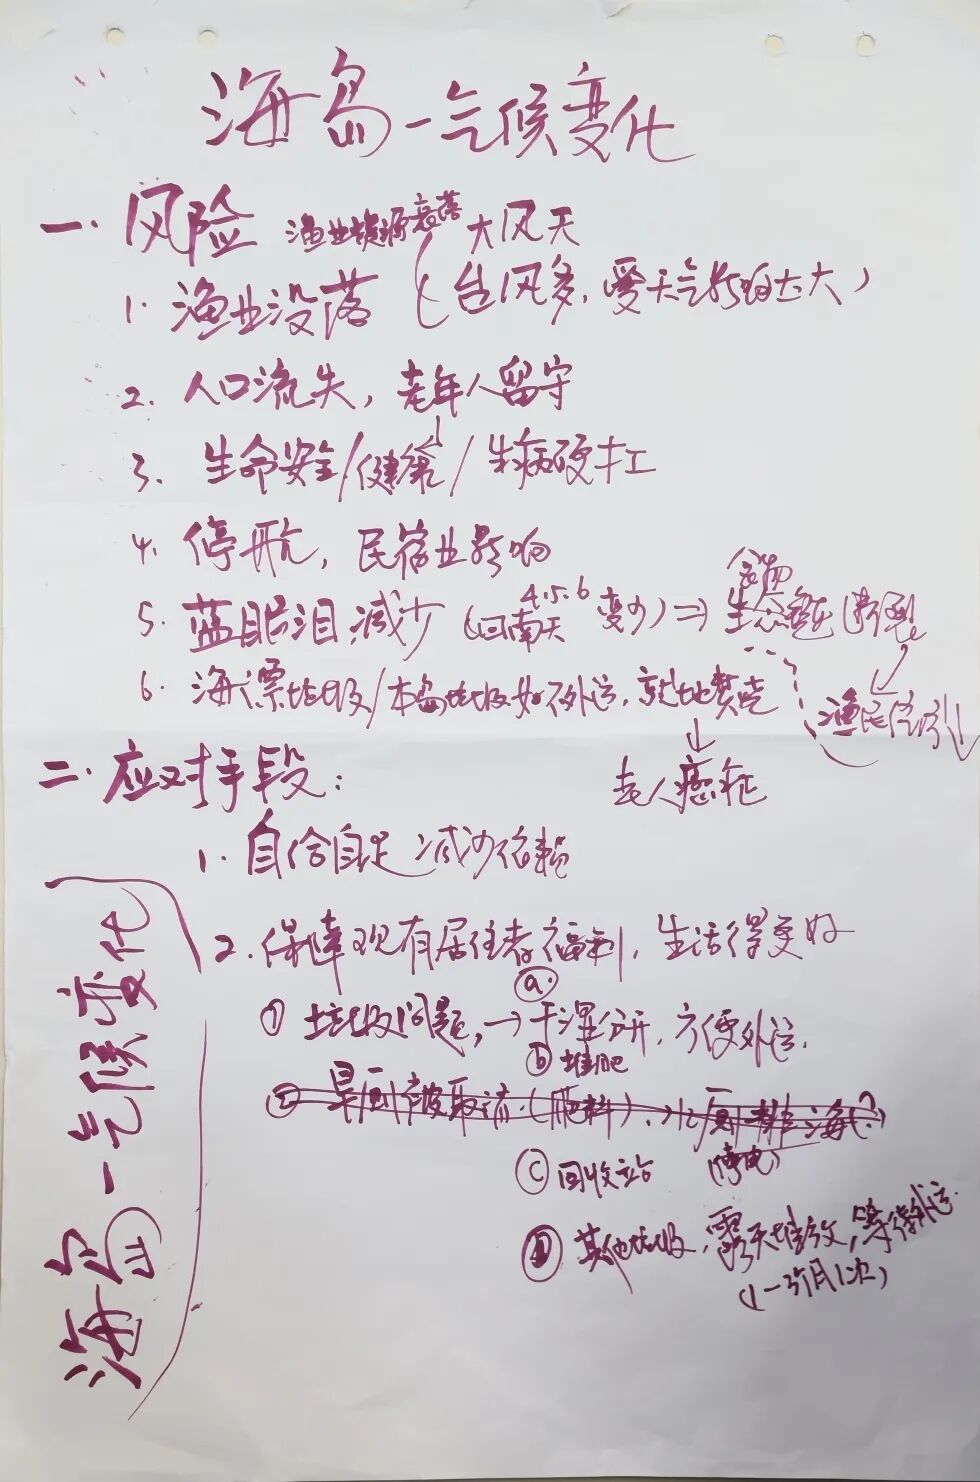 海岛-气候变化
一.风险 渔业资源衰落 大风天
1. 渔业没落 (台风多,受天气影响大)
2. 人口流失,老年人留守
3. 生命安全/健康/生病硬扛
4. 停航,民宿业影响
食物
5. 蓝眼泪减少 (回南天 4.5.6 变少) ⇒ 生态链断裂
6. 海漂垃圾/本岛垃圾如不外运,就地焚烧
渔民信仰↓
↓
老人癌症
二.应对手段:
1. 自给自足 减少依赖
2. 保障现有居住者福利,生活得更好
① 垃圾问题,→ ⓐ 干湿分开,方便外运.
ⓑ 堆肥
② 旱厕 (肥料) → 厕排海?
ⓒ 回收站 (停电)
ⓓ 其他垃圾,露天堆放,等待外运
(1一个月1次)
海岛-气候变化